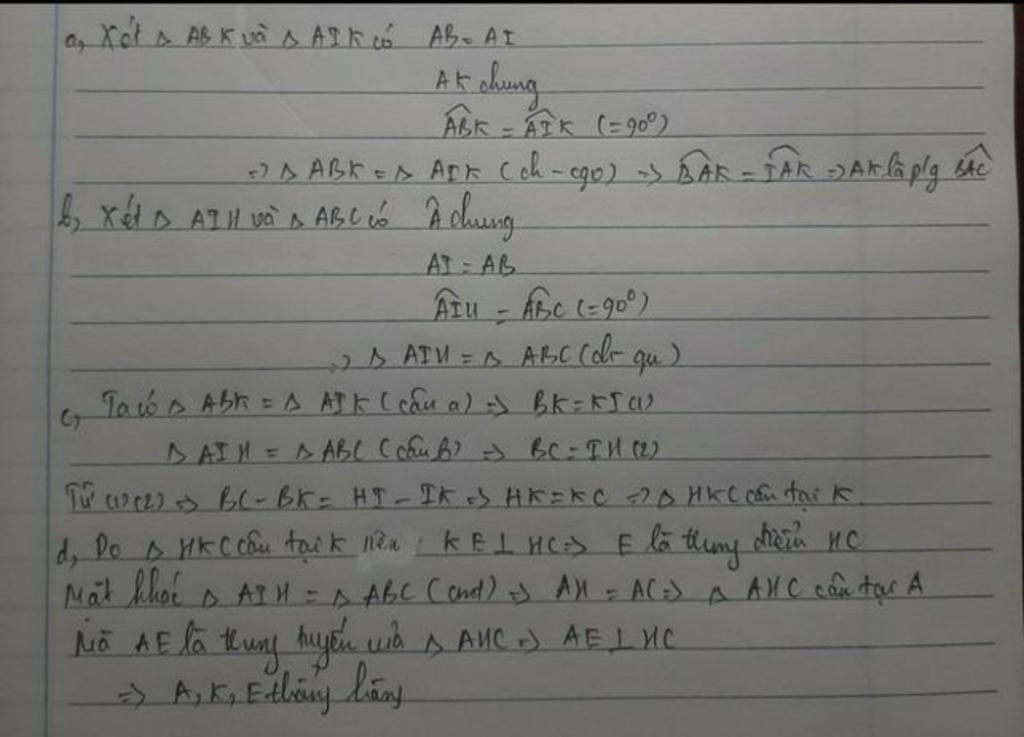 a, Xét △ ABK và △ AIK có AB = AI
AK chung
ABK = AIK (=90⁰)
=> △ ABK = △ AIK (ch - cgv) => BAK = IAK => AK là p/g BAC
b, Xét △ AIH và △ ABC có Â chung
AI = AB
AIH = ABC (=90⁰)
=> △ AIH = △ ABC (ch - gn)
c, Ta có △ ABK = △ AIK (câu a) => BK = KI (1)
△ AIH = △ ABC (câu b) => BC = IH (2)
Từ (1) (2) => BC - BK = HI - IK => HK = KC => △ HKC cân tại K
d, Do △ HKC cân tại K nên KE ⊥ HC => E là trung điểm HC
Mặt khác △ AIH = △ ABC (cmt) => AH = AC => △ AHC cân tại A
Mà AE là trung tuyến của △ AHC => AE ⊥ HC
=> A, K, E thẳng hàng